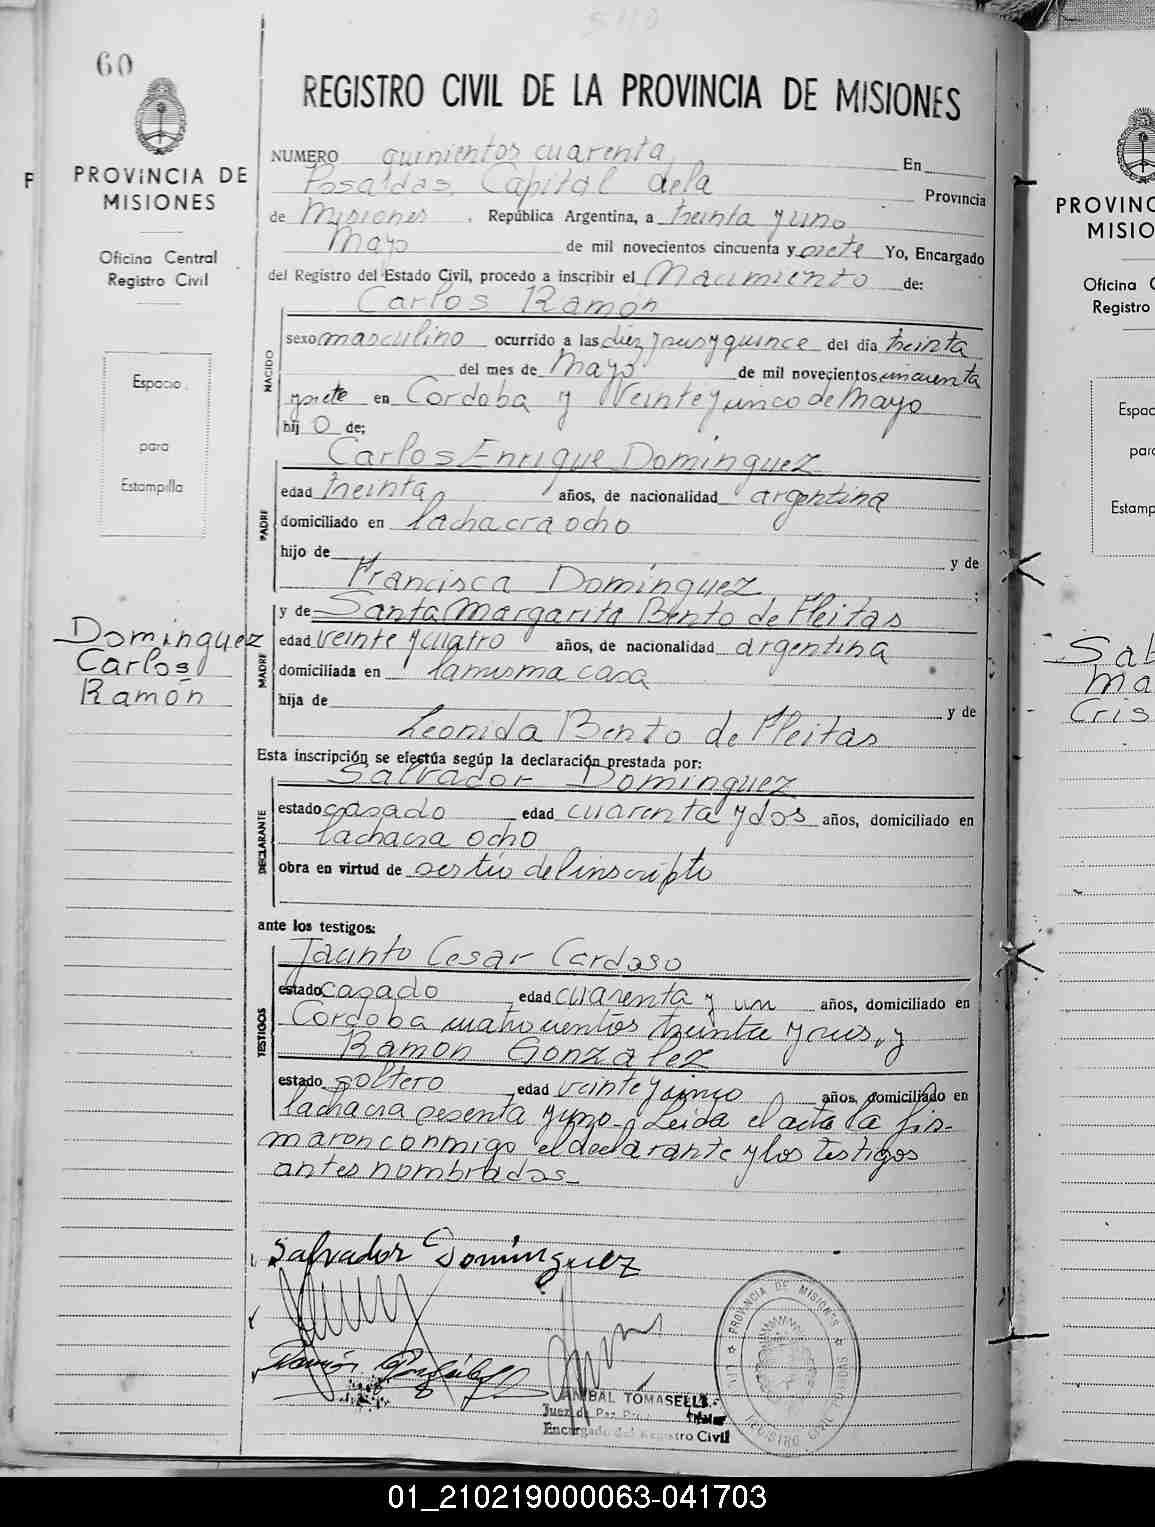 60
REGISTRO CIVIL DE LA PROVINCIA DE MISIONES
PROVINCIA DE
MISIONES
Oficina Central
Registro Civil
Espacio
para
Estampilla
Dominguez
Carlos
Ramón
NUMERO quinientos cuarenta En
Posadas, Capital dela Provincia
de Misiones. República Argentina, a treinta y uno
Mayo de mil novecientos cincuenta y siete Yo, Encargado
del Registro del Estado Civil, procedo a inscribir el Nacimiento de:
Carlos Ramón
NACIDO
sexo masculino ocurrido a las diez y seis y quince del día treinta
del mes de Mayo de mil novecientos cincuenta
y siete en Cordoba y Veinte y cinco de Mayo
hij O de:
Carlos Enrique Dominguez
PADRE
edad treinta años, de nacionalidad argentina
domiciliado en la chacra ocho
hijo de y de
Francisca Domínguez
y de Santa Margarita Bento de Fleitas
MADRE
edad veinte y cuatro años, de nacionalidad argentina
domiciliada en la misma casa
hija de y de
Leonida Bento de Fleitas
Esta inscripción se efectúa según la declaración prestada por:
Salvador Dominguez
DECLARANTE
estado casado edad cuarenta y dos años, domiciliado en
la chacra ocho
obra en virtud de ser tio del inscripto
ante los testigos:
Jacinto Cesar Cardoso
TESTIGOS
estado casado edad cuarenta y un años, domiciliado en
Cordoba cuatrocientos treinta y seis, y
Ramon Gonzalez
estado soltero edad veinte y cinco años, domiciliado en
la chacra sesenta y uno. Leida el acta la fir-
maron conmigo el declarante y los testigos
antes nombrados.
Salvador Domínguez
Ramón González
ANIBAL TOMASELLI
Juez de Paz
Encargado del Registro Civil
PROVINCIA DE MISIONES
REGISTRO CIVIL
PROVINC
MISIO
Oficina C
Registro
Espac
para
Estamp
Sab
Ma
Cris
01_210219000063-041703